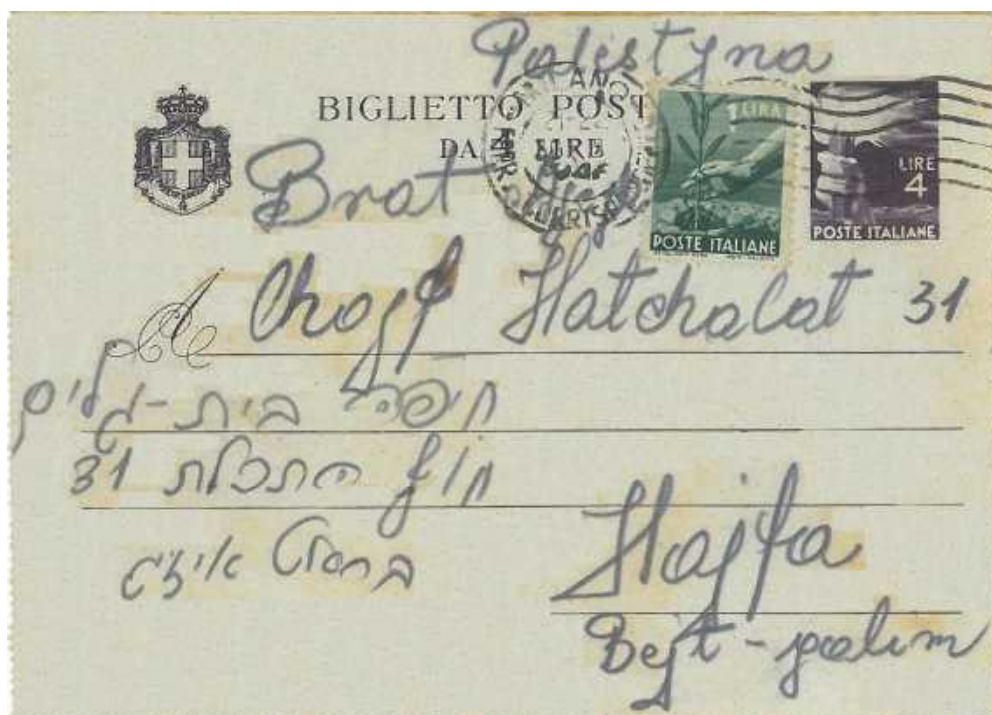 Palestyna
BIGLIETTO POST
DA 4 LIRE
1 LIRA
LIRE
4
POSTE ITALIANE
POSTE ITALIANE
Brat
A Chojf Hatchalat 31
חיפה בית-גלים
חוף התכלת 31
Hajfa
Bejt-galim